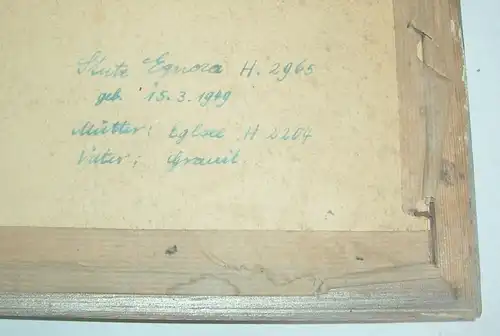 Stute Egnora H. 2965
geb. 15.3.1949
Mutter: Eglsee H 2204
Vater: Granit.